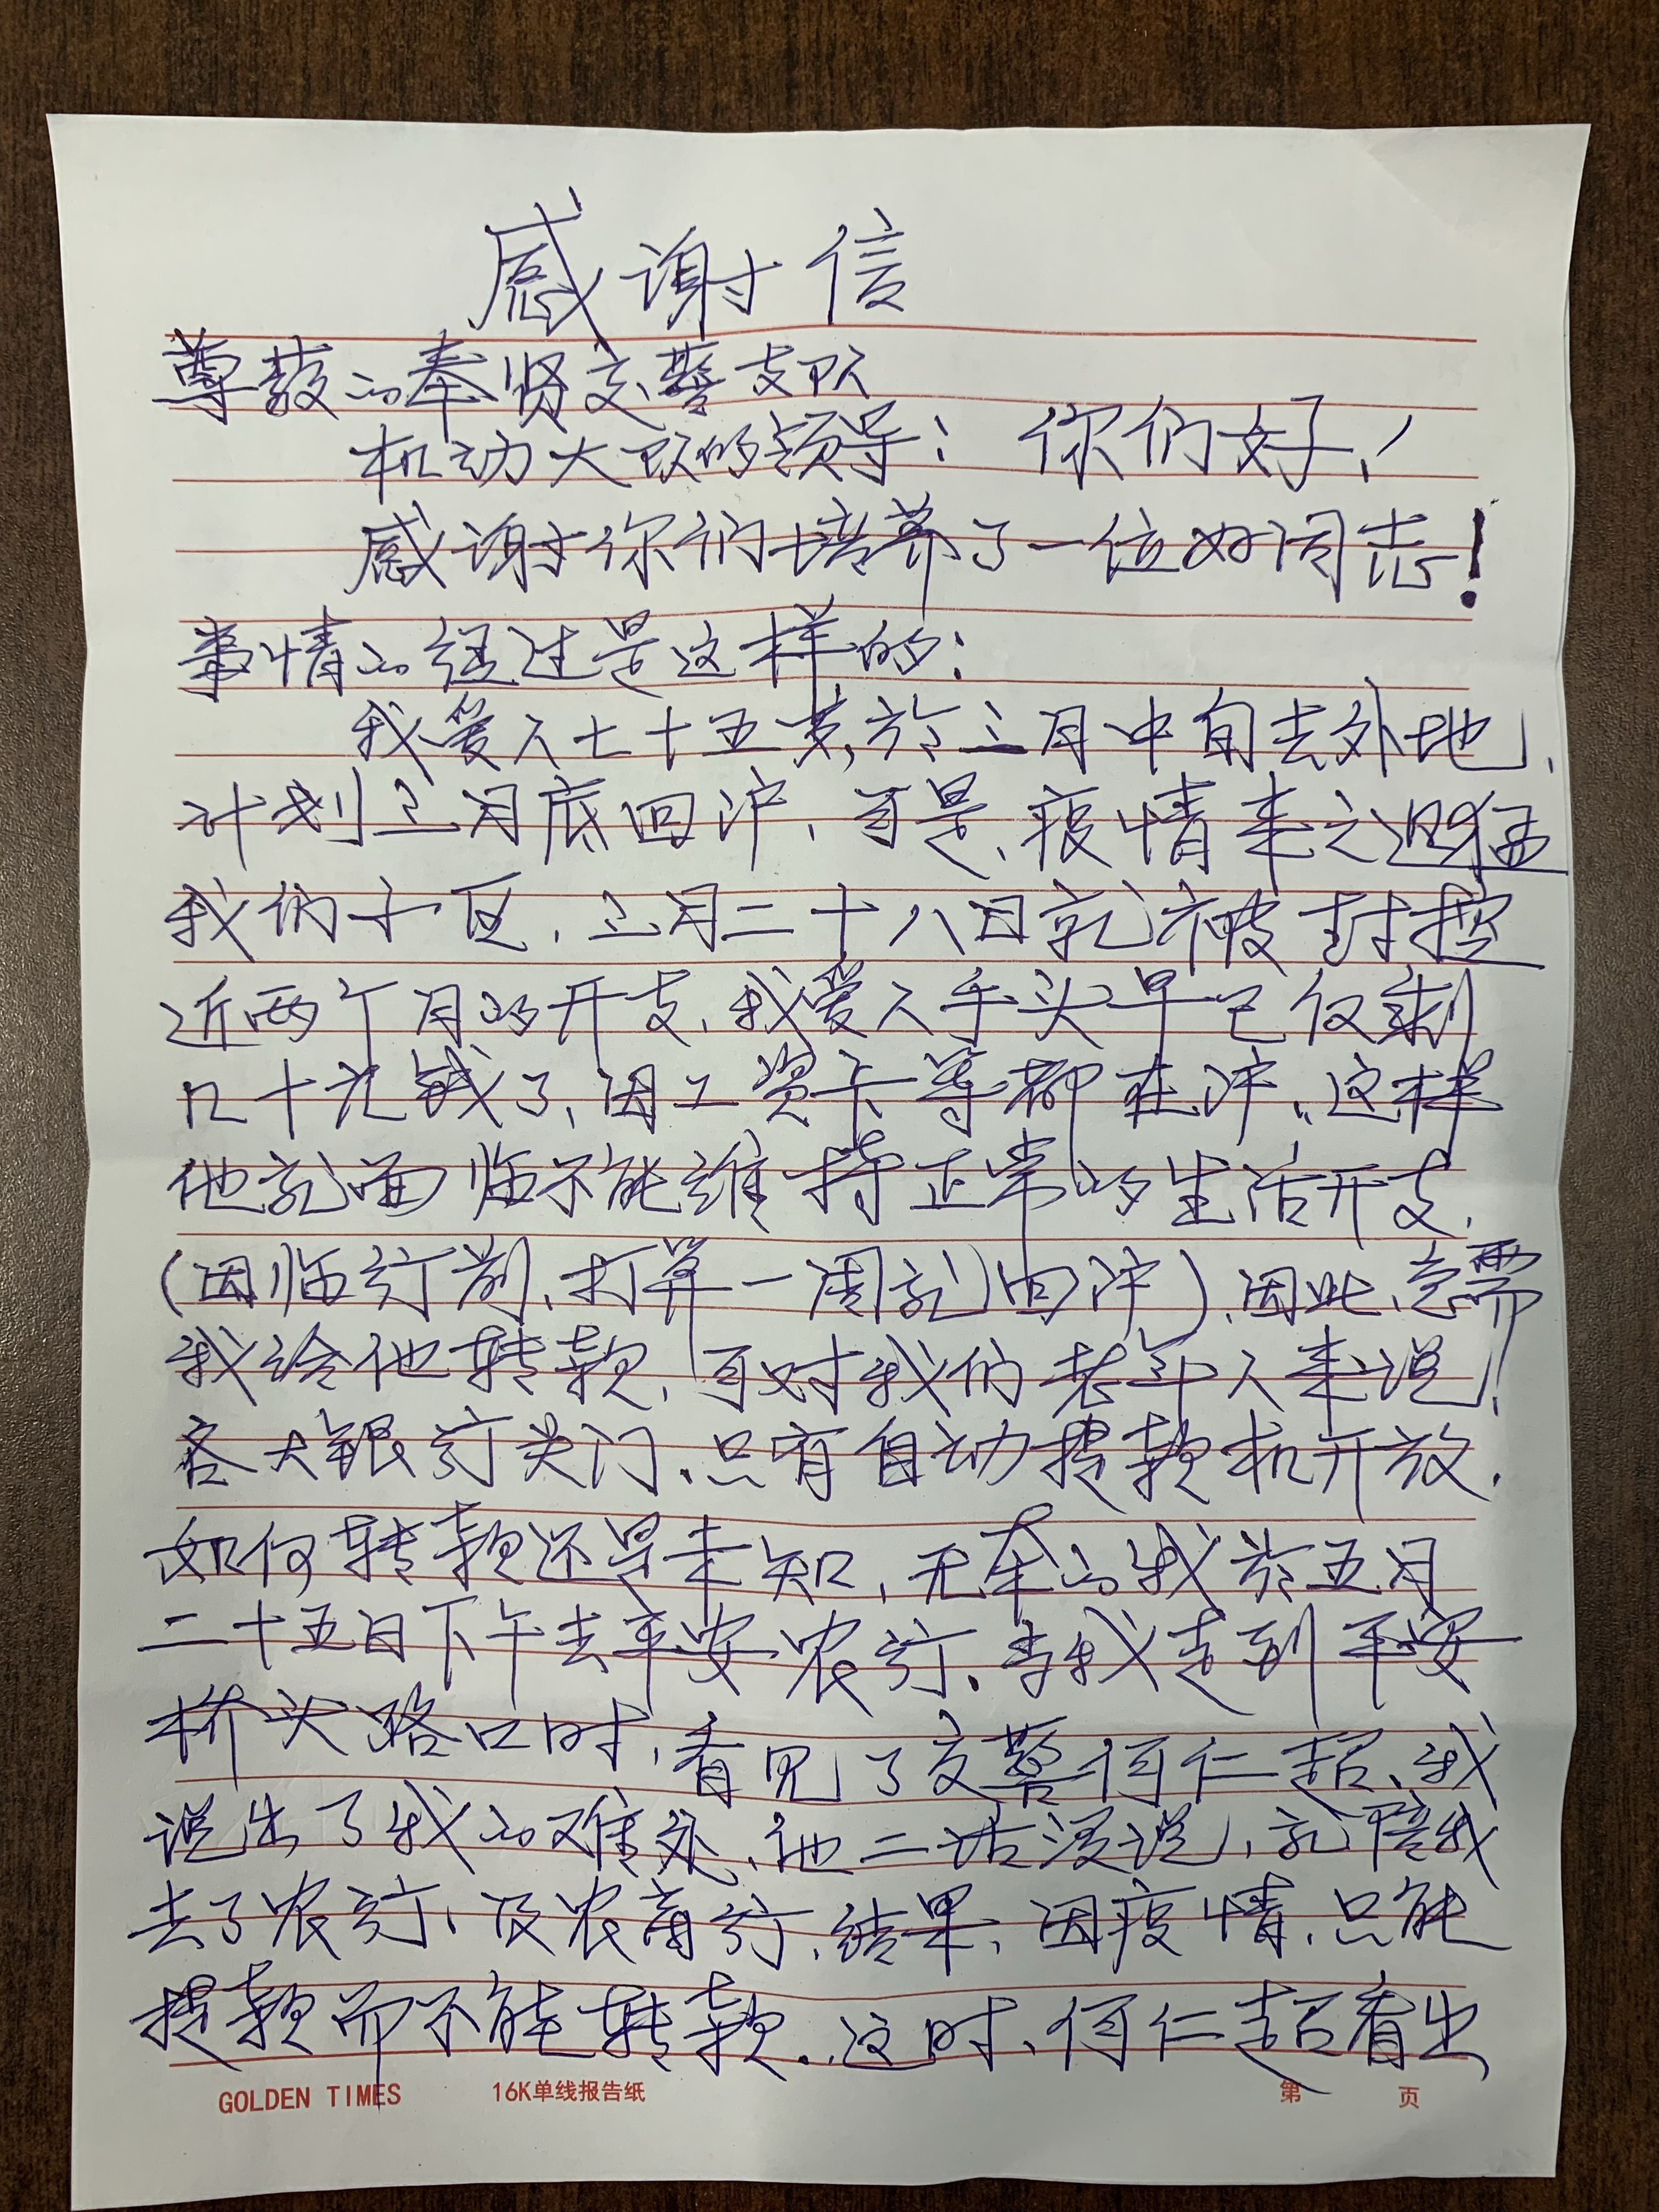 感谢信
尊敬的奉贤交警支队
机动大队的领导：你们好！
感谢你们培养了一位好同志！
事情的经过是这样的：
我爱人七十五岁，於三月中旬去外地，
计划三月底回沪，可是、疫情来之迅猛
我们小区，三月二十八日就被封控
近两个月的开支、我爱人手头早已仅剩
几十元钱了、因工资卡等都在沪、这样
他就面临不能维持正常的生活开支，
（因临行前、打算一周就回沪）、因此、急需
我给他转款，可对我们老年人来说！
各大银行关门、只有自动提款机开放．
如何转款还是未知，无奈的我於五月
二十五日下午去平安农行．当我走到平安
桥头路口时，看见了交警何仁超、我
说出了我的难处、他二话没说，就陪我
去了农行、及农商行．结果、因疫情、只能
提款而不能转款．这时、何仁超看出
GOLDEN TIMES 16K单线报告纸 第 页